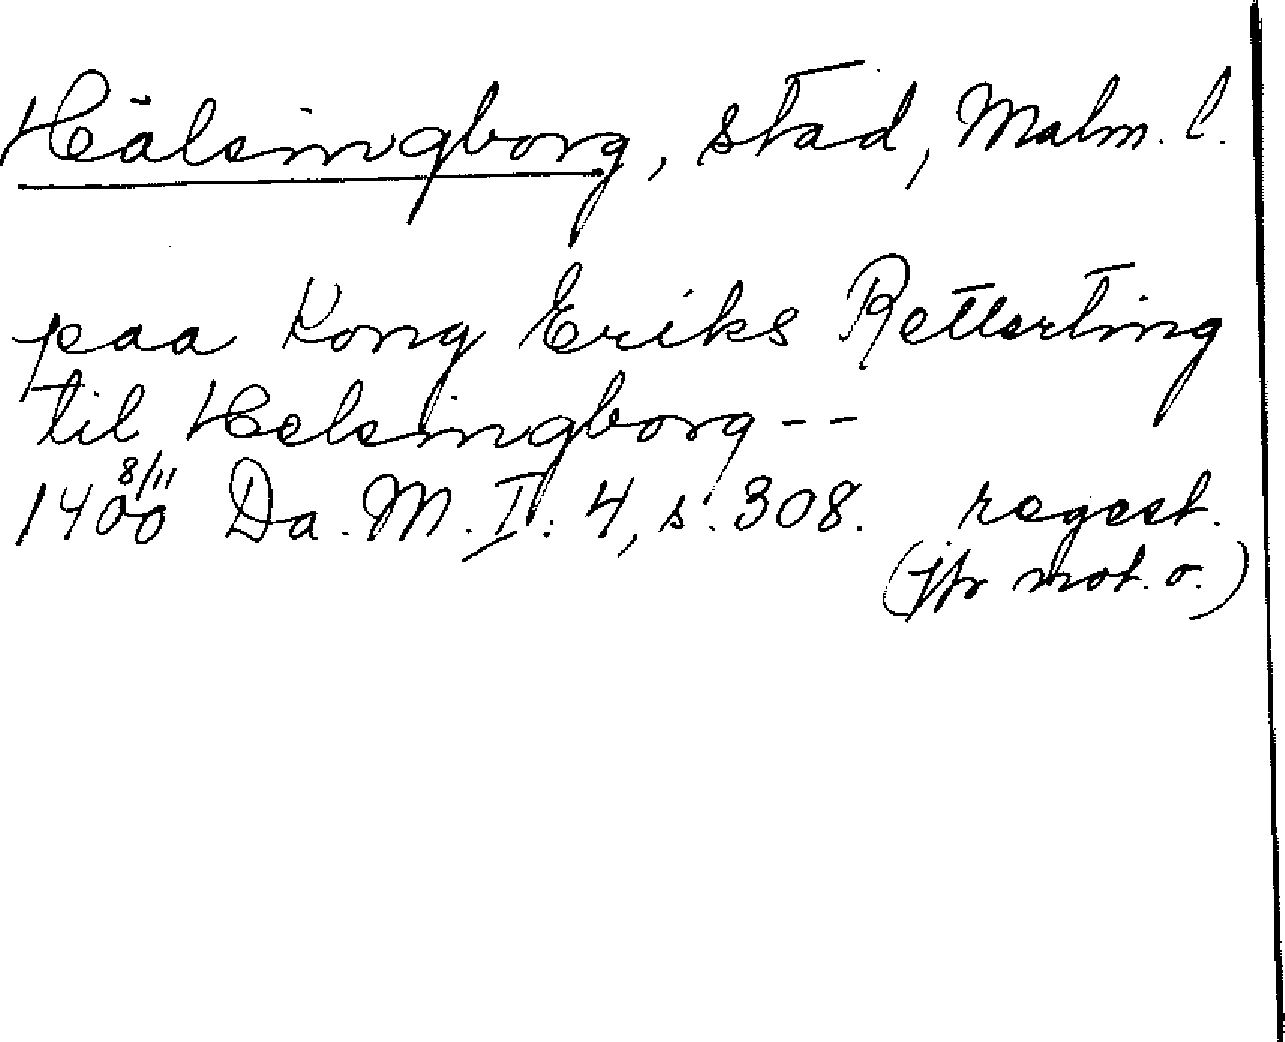 Hälsingborg, stad, Malm. l.
paa Kong Eriks Retterting
til Helsingborg--
1400 8/11 Da. M. I: 4, s. 308. regest.
(jfr mot. o.)